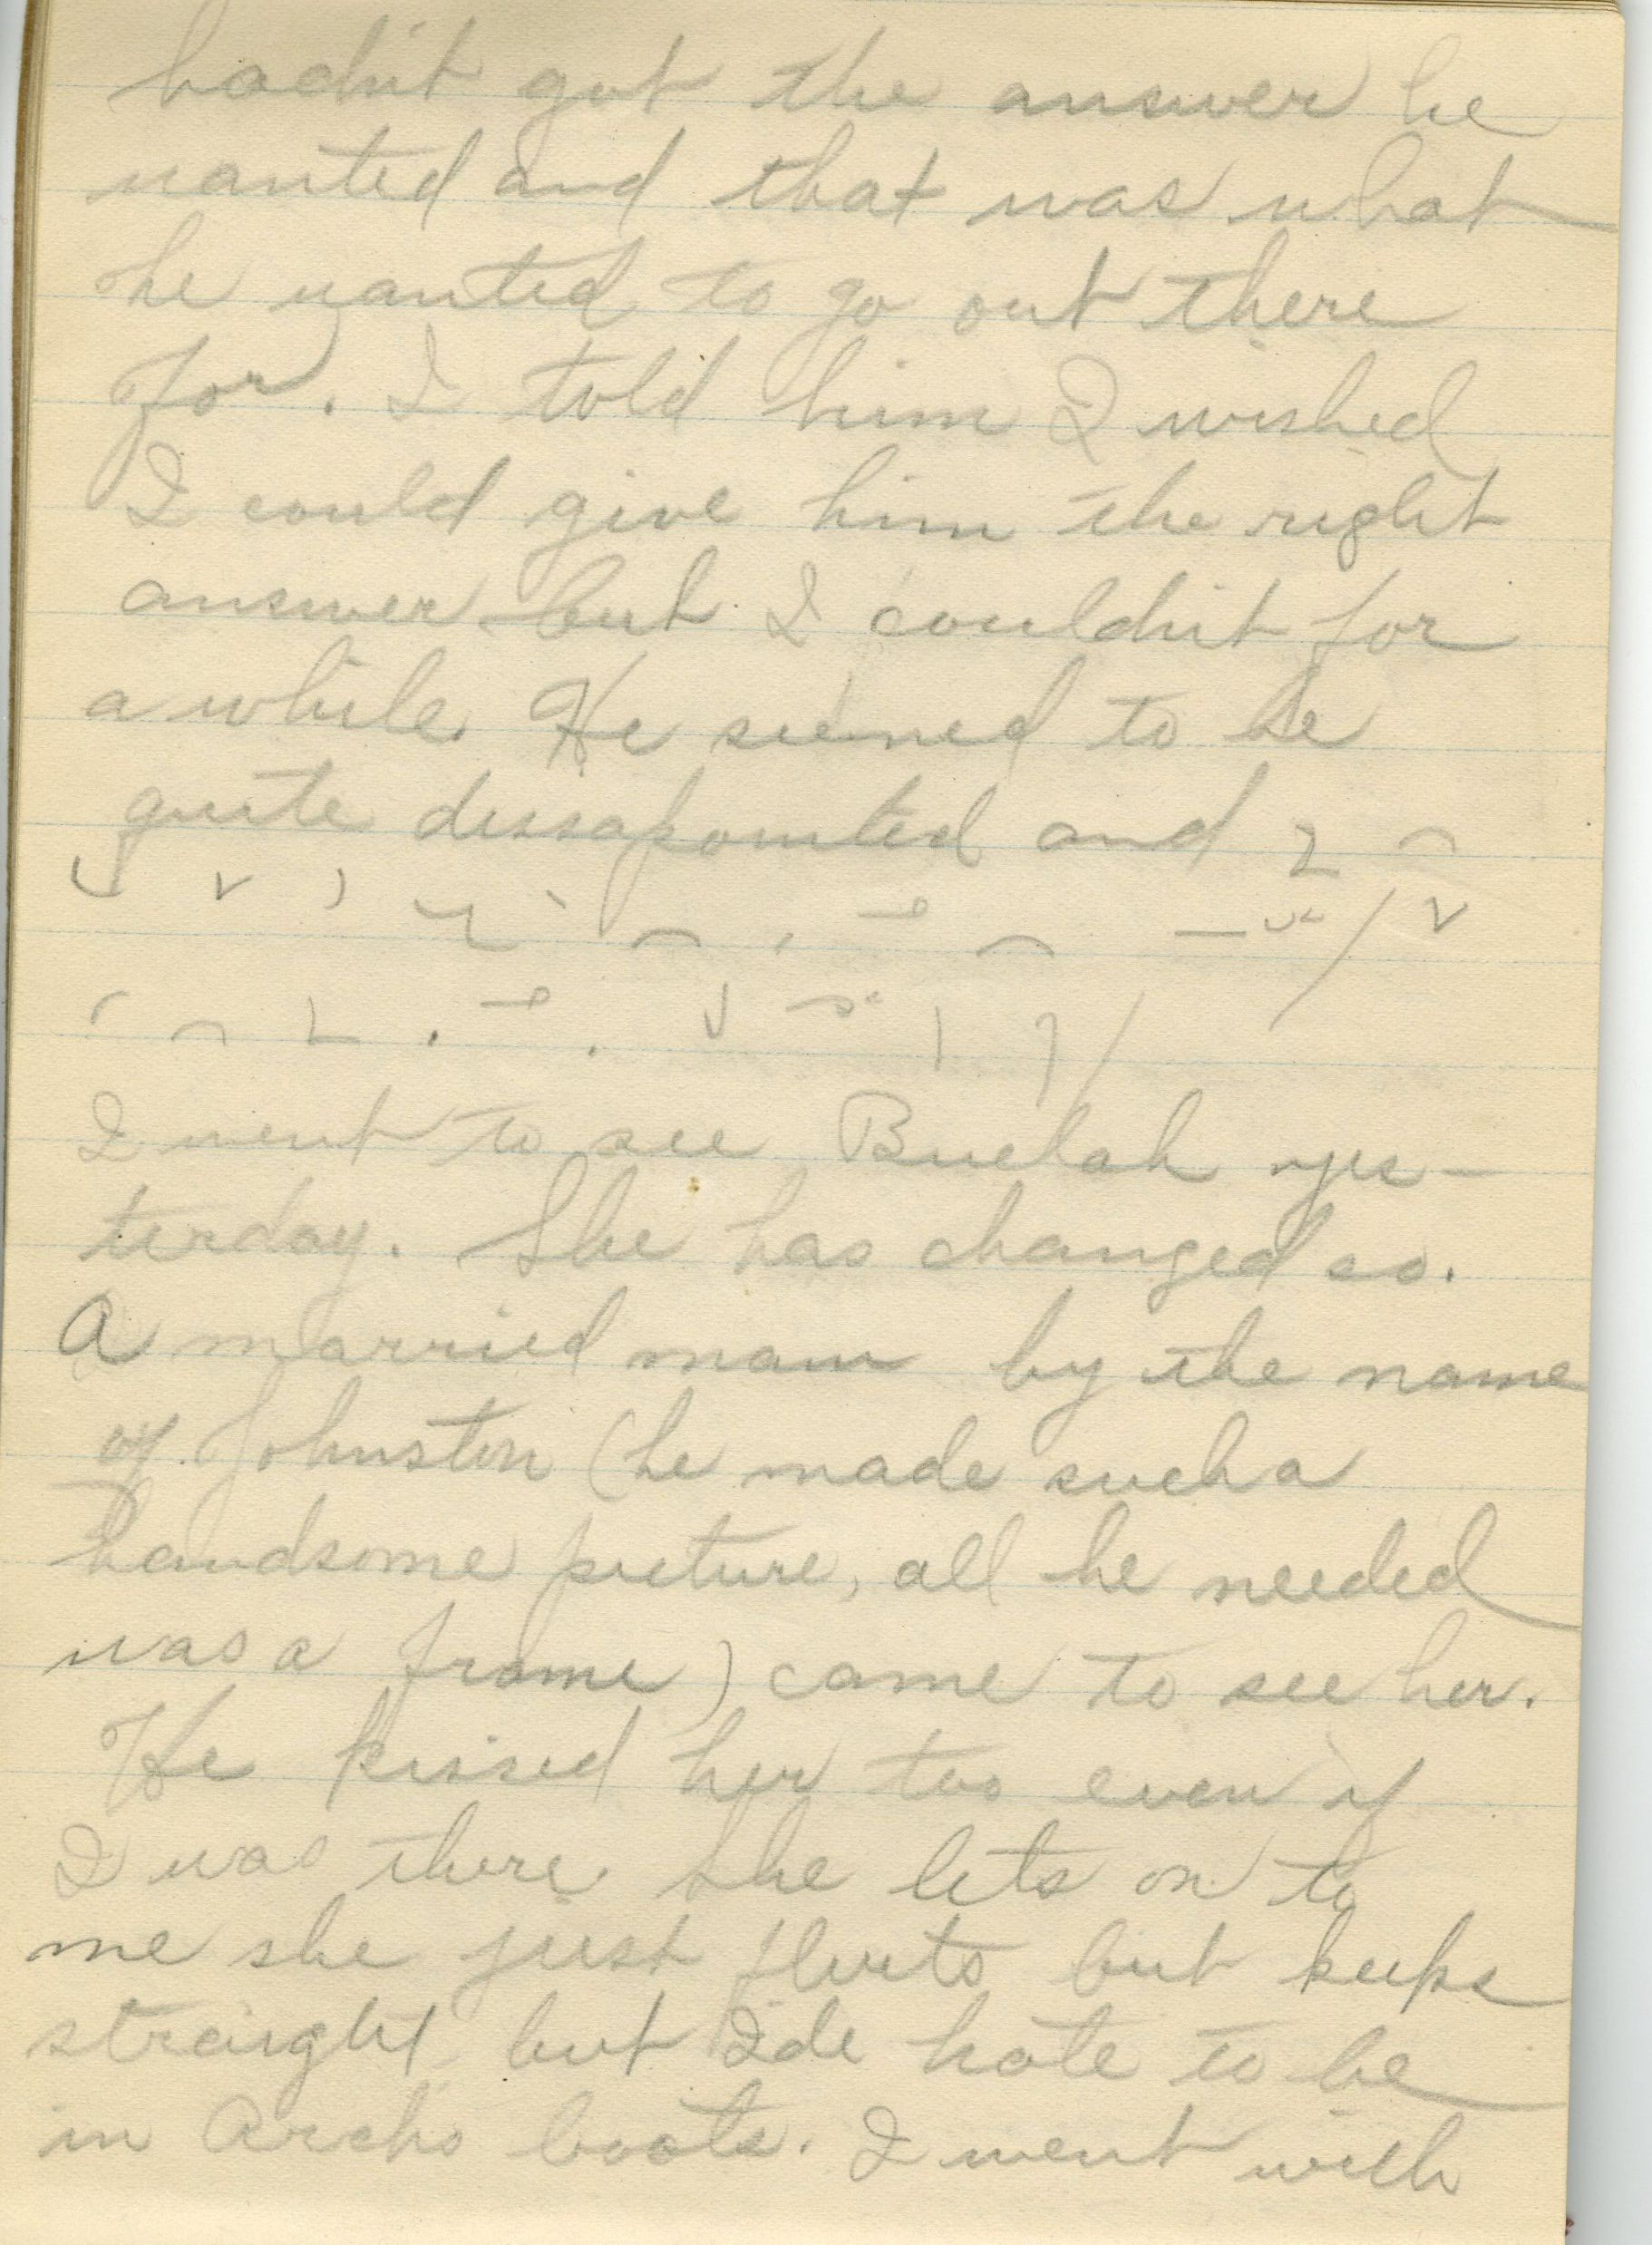 hadn't got the answer he
wanted and that was what
he wanted to go out there
for. I told him I wished
I could give him the right
answer but I couldn't for
a while. He seemed to be
quite dissapointed and
I went to see Buelah yes-
terday. She has changed so.
A married man by the name
of Johnston (he made such a
handsome picture, all he needed
was a frame) came to see her.
He kissed her too even if
I was there. She lets on to
me she just flirts but keeps
straight but I'de hate to be
in Archs boots. I went with